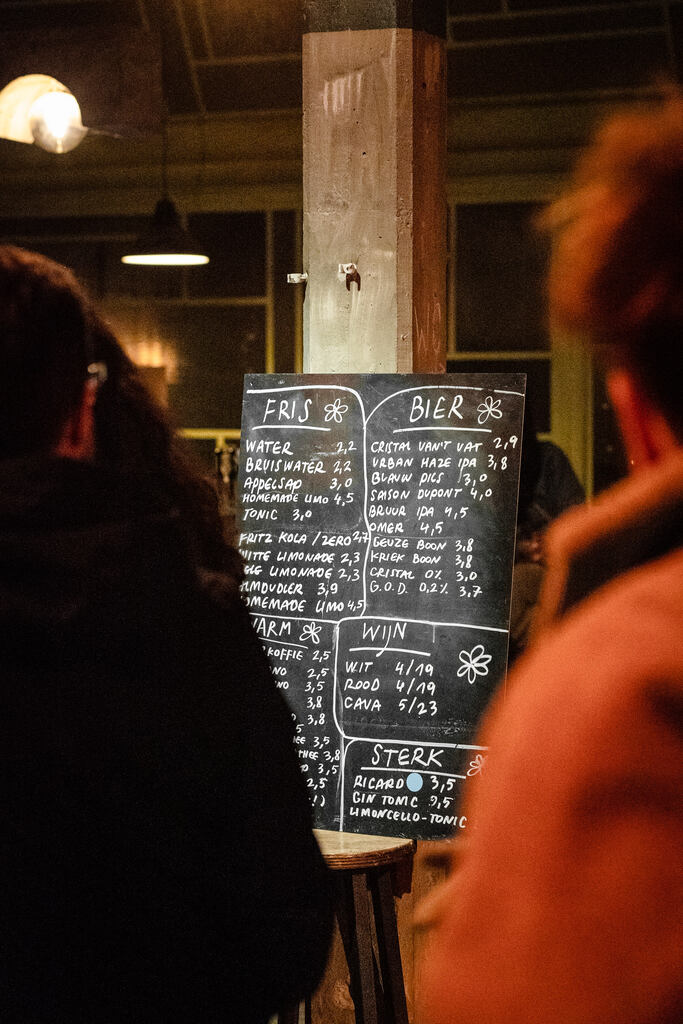 FRIS
WATER 2,2
BRUISWATER 2,2
APPELSAP 3,0
HOMEMADE LIMO 4,5
TONIC 3,0
FRITZ KOLA / ZERO 2,7
WITTE LIMONADE 2,3
GELE LIMONADE 2,3
ALMDUDLER 3,9
HOMEMADE LIMO 4,5
BIER
CRISTAL VAN'T VAT 2,9
URBAN HAZE IPA 3,8
BLAUW PILS 3,0
SAISON DUPONT 4,0
BRUUR IPA 4,5
OMER 4,5
GEUZE BOON 3,8
KRIEK BOON 3,8
CRISTAL 0% 3,0
G.O.D. 0,2% 3,7
WARM
KOFFIE 2,5
2,5
3,5
3,8
3,8
3,5
3,8
3,5
2,5
WIJN
WIT 4/19
ROOD 4/19
CAVA 5/23
STERK
RICARD 3,5
GIN TONIC 9,5
LIMONCELLO-TONIC